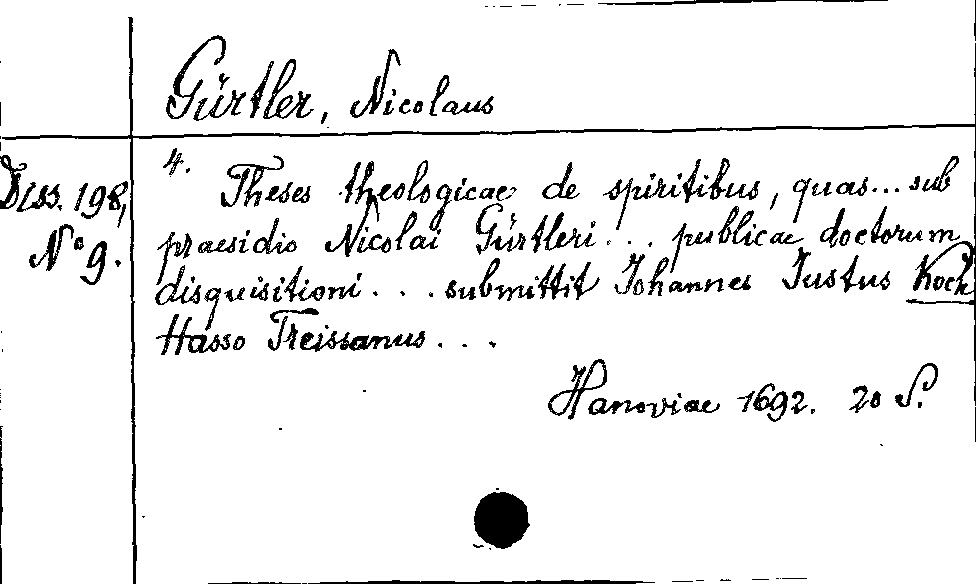 Gürtler, Nicolaus
Diss. 198,
N° 9.
4. Theses theologicae de spiritibus, quas... sub
praesidio Nicolai Gürtleri ... publicae doctorum
disquisitioni ... submittit Johannes Justus Koch
Hasso Treissanus ...
Hanoviae 1692. 20 S.